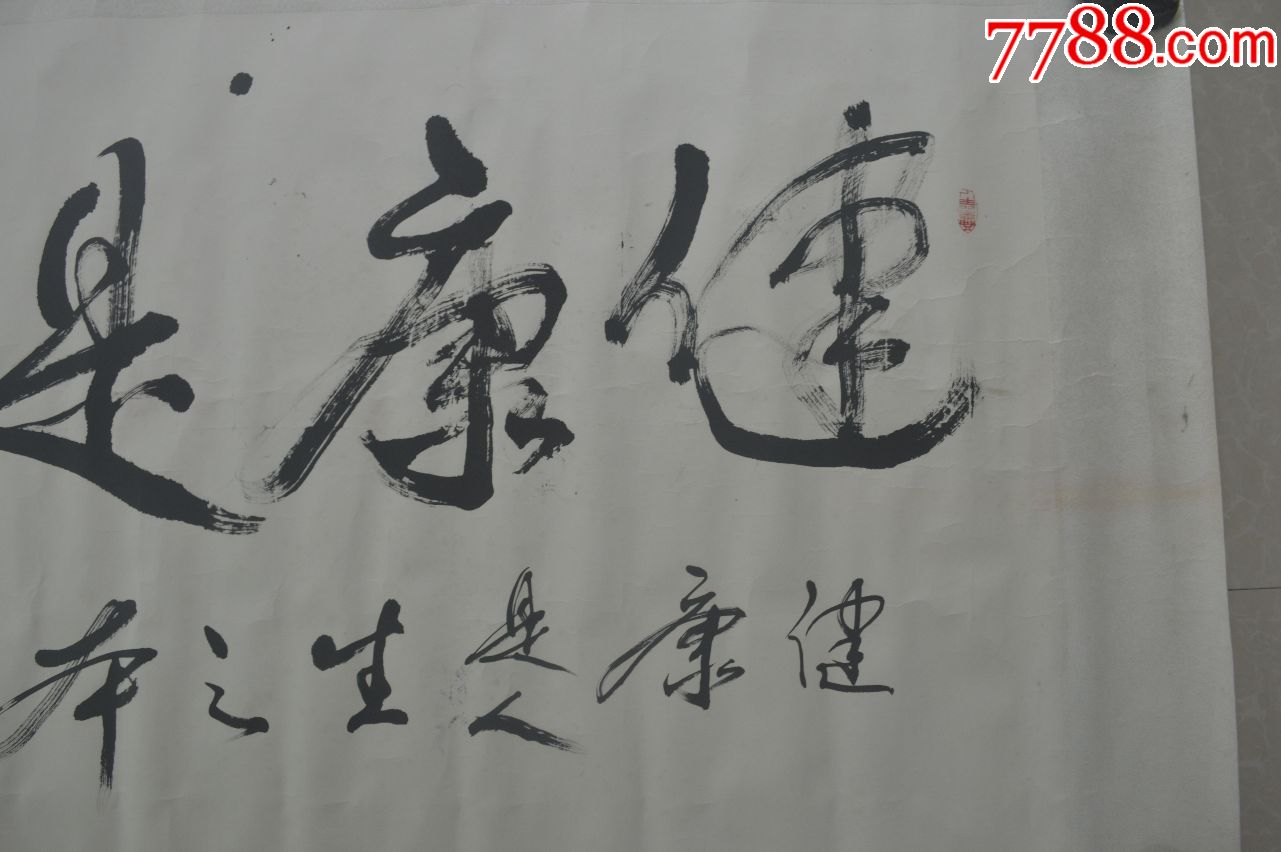 7788.com
健康是
健康是人生之本